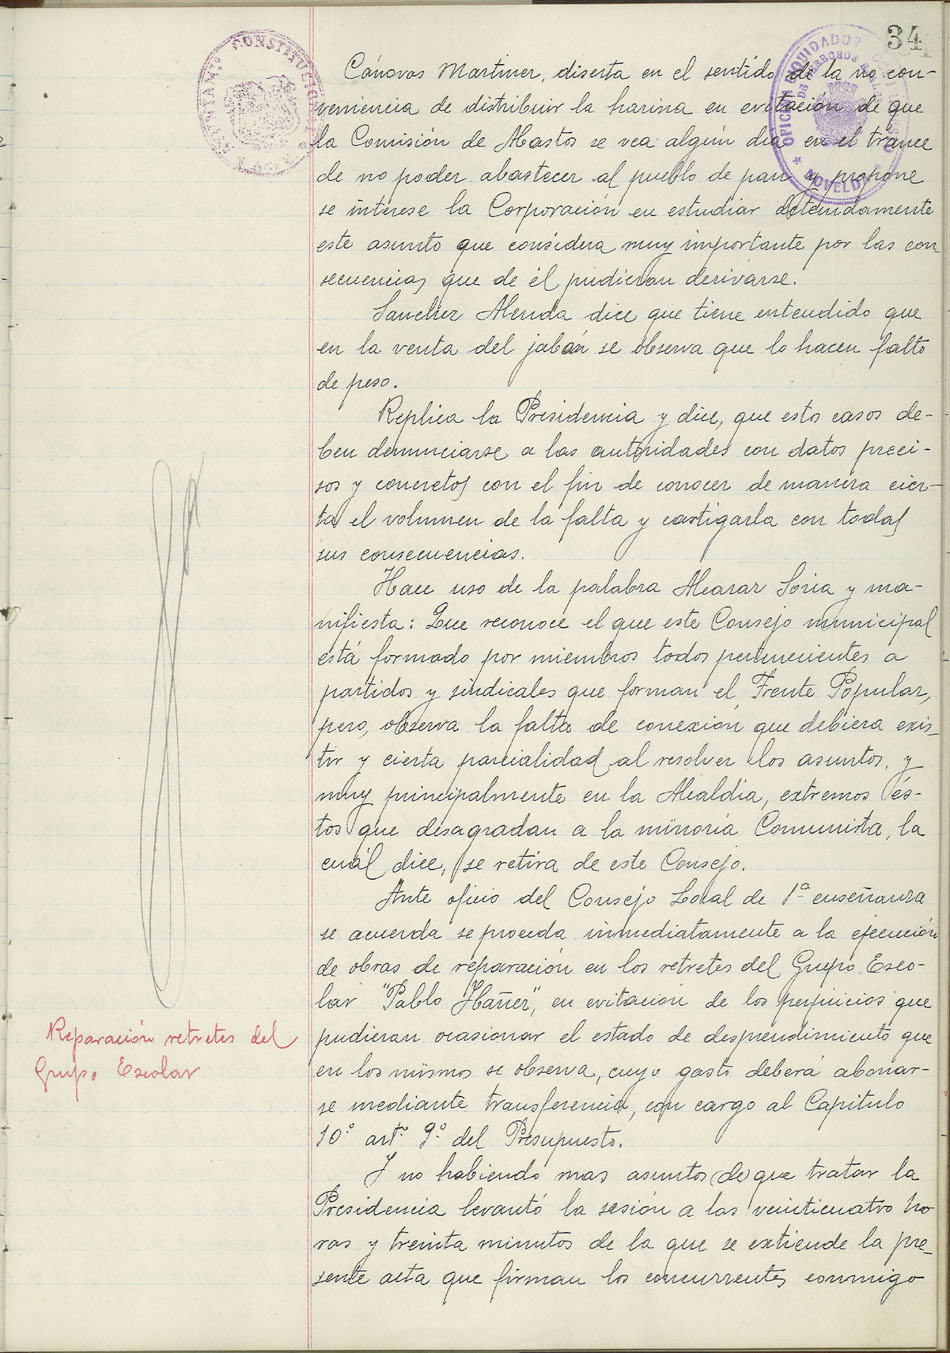 34
Cánovas Martinez, diserta en el sentido de la no con-
veniencia de distribuir la harina en evitación de que
la Comisión de Abastos se vea algún dia en el trance
de no poder abastecer al pueblo de pan y propone
se intérese la Corporación en estudiar detenidamente
este asunto que considera muy importante por las con-
secuencias que de él pudieran derivarse.
Sanchez Alenda dice que tiene entendido que
en la venta del jabón se observa que lo hacen falto
de peso.
Replica la Presidencia y dice, que esto casos de-
ben denunciarse a las autoridades con datos preci-
sos y concretos con el fin de conocer de manera cier-
ta el volumen de la falta y castigarla con todas
sus consecuencias.
Hace uso de la palabra Alcaraz Soria y ma-
nifiesta: Que reconoce el que este Consejo municipal
está formado por miembros todos pertenecientes a
partidos y sindicales que forman el Frente Popular,
pero, observa la falta de conexión que debiera exis-
tir y cierta parcialidad al resolver los asuntos, y
muy principalmente en la Alcaldia, extremos és-
tos que desagradan a la minoria Comunista, la
cuál dice, se retira de este Consejo.
Ante oficio del Consejo Local de 1ª enseñanza
se acuerda se proceda inmediatamente a la ejecución
de obras de reparación en los retretes del Grupo Esco-
lar "Pablo Ibañez", en evitación de los perjuicios que
pudieran ocasionar el estado de desprendimiento que
en los mismos se observa, cuyo gasto deberá abonar-
se mediante transferencia, con cargo al Capitulo
10º artº 9º del Presupuesto.
Y no habiendo mas asuntos de que tratar la
Presidencia levantó la sesión a las veinticuatro ho-
ras y treinta minutos de la que se extiende la pre-
sente acta que firman los concurrentes conmigo
Reparación retretes del
Grupo Escolar
AYUNTAMTº CONSTITUCIONAL
OFICINA LIQUIDADORA
DE DERECHOS REALES
NOVELDA